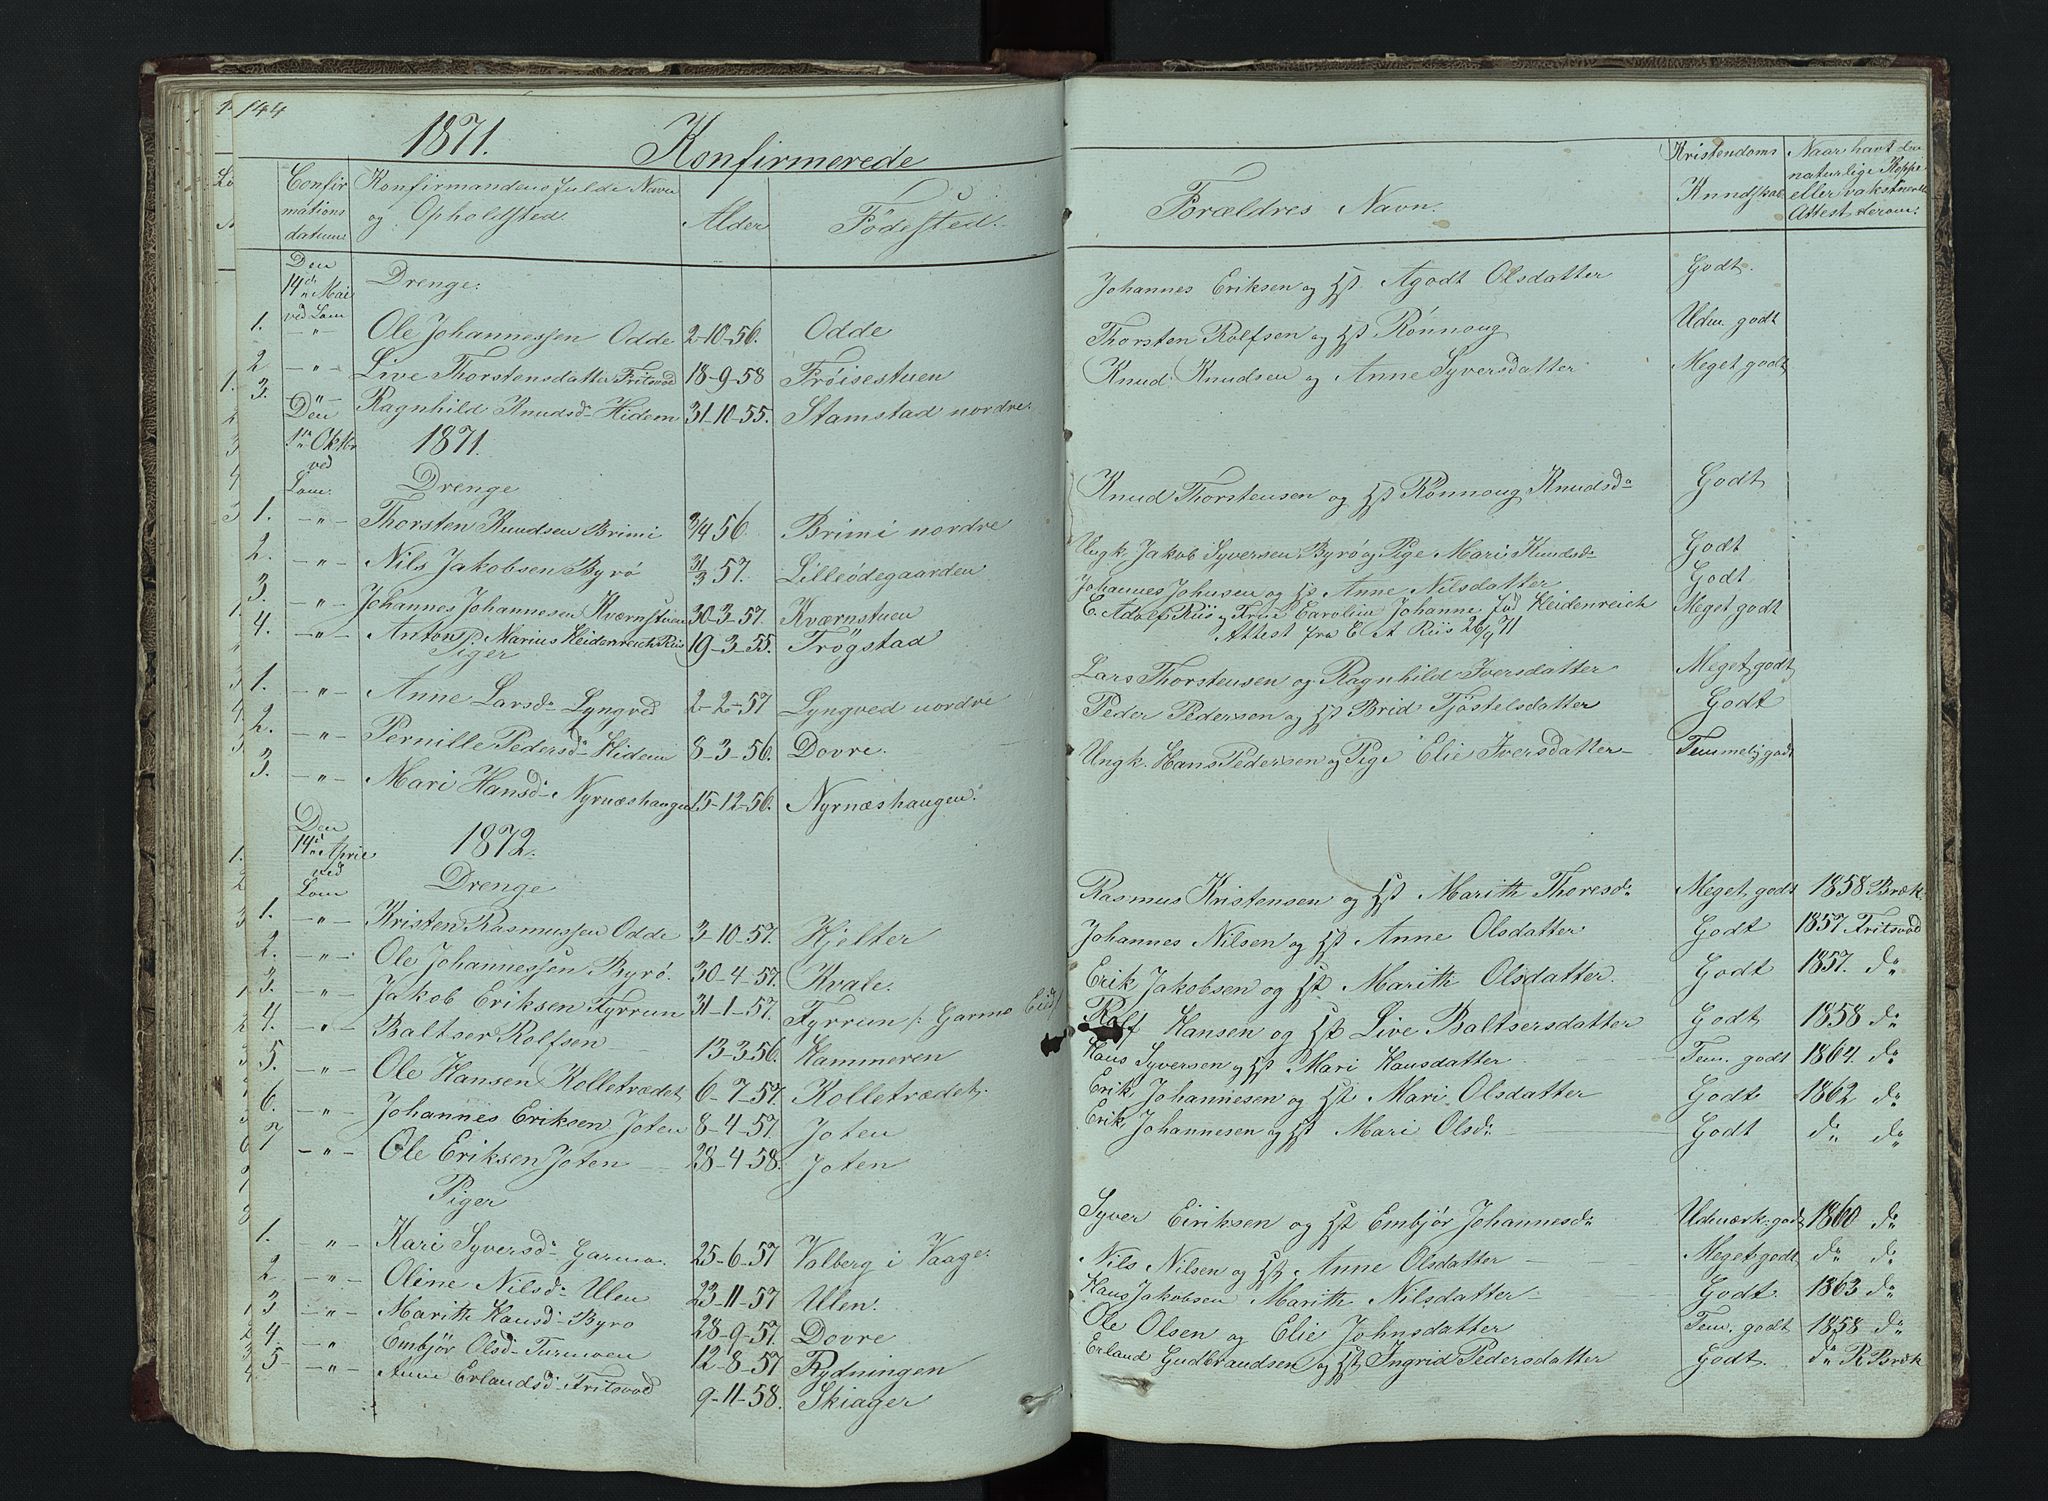 144
1871.
Konfirmerede
Confirmations datum.
Konfirmandens fulde Navn og Opholdsted.
Alder
Födested.
Forældres Navn.
Kristendoms Kundskab
Naar havt de naturlige Kopper eller vaksineret Attest derom.
Den 14de Mai ved Lom
Drenge:
1. -"- Ole Johannessen Odde 2-10-56. Odde
Johannes Eriksen og Hst Agodt Olsdatter Godt.
2 -"- Live Thorstensdatter Fritsvod 18-9-58 Frøisestuen
Thorsten Rolfsen og Hst Rønnoug Udm. godt
3. -"- Ragnhild Knudsd Hidem 31-10-55. Stamstad nordre.
Knud Knudsen og Anne Syversdatter Meget godt
Den 1ste Oktbr ved Lom.
1871.
Drenge
1. -"- Thorsten Knudsen Brimi 3/4 56 Brimi nordre
Knud Thorstensen og Hst Rønnoug Knudsd Godt
2. -"- Nils Jakobsen Byrø 31/3 57. Lilleødegaarden
Ungk. Jakob Syversen Byrø og Pige Mari Knudsd Godt
3. -"- Johannes Johannesen Kværnstuen 30-3-57. Kværnstuen
Johannes Johnsen og Hst Anne Nilsdatter Godt
4. -"- Anton Marius Heidenreich Riis 19-3-55. Trøgstad
C. Adolf Riis og Frue Carolin Johanne fød Heidenreich Meget godt
Attest fra C A Riis 26/9 71
Piger
1. -"- Anne Larsd Lyngved 2-2-57 Lyngved nordre
Lars Thorstensen og Ragnhild Iversdatter Meget godt
2. -"- Pernille Pedersd Hidem 8-3-56. Dovre.
Peder Pedersen og Hst Brid Tjøstelsdatter Godt
3. -"- Mari Hansd Nyrnæshaugen 15-12-56. Nyrnæshaugen.
Ungk. Hans Pedersen og Pige Elie Iversdatter Temmelig godt
Den 14de April ved Lom
1872.
Drenge
1. -"- Kristen Rasmussen Odde 3-10-57. Hjelter
Rasmus Kristensen og Hst Marith Thoresd Meget godt 1858 Bræk.
2. -"- Ole Johannessen Byrø. 30-4-57. Kvale.
Johannes Nilsen og Hst Anne Olsdatter Godt 1857 Fritsvod
3. -"- Jakob Eriksen Fyrrun 31-1-57. Fyrrun /: Garmo Eid/
Erik Jakobsen og Hst Marith Olsdatter. Godt 1857. do
4. -"- Baltser Rolfsen 13-3-56. Hammeren
Rolf Hansen og Hst Live Baltsersdatter Godt 1858 do
5. -"- Ole Hansen Kolletrædet 6-7-57. Kolletrædet.
Hans Syversen og Hst Mari Hansdatter Tem. godt 1864. do
6. -"- Johannes Eriksen Joten 8-4-57. Joten
Erik Johannesen og Hst Mari Olsdatter Godt 1862 do
7 -"- Ole Eriksen Joten 28-4-58. Joten
Erik Johannesen og Hst Mari Olsd Godt do do
Piger
1. -"- Kari Syversd Garmo. 25-6-57 Valberg i Vaage
Syver Eiriksen og Hst Embjör Johannesd Udmærk. godt 1860 do
2. -"- Oline Nilsd Ulen 23-11-57 Ulen.
Nils Nilsen og Hst Anne Olsdatter Meget godt do do
3 -"- Marith Hansd Byrø 28-9-57. Dovre
Hans Jakobsen Marith Nilsdatter Godt. 1863 do
4. -"- Embjör Olsd Turmoen 12-8-57 Rydningen
Ole Olsen og Elie Johnsdatter Tem. godt 1858 do
5 -"- Anne Erlandsd Fritsvod 9-11-58. Skiager
Erland Gudbrandsen og Hst Ingrid Pedersdatter Godt. do R Bræk